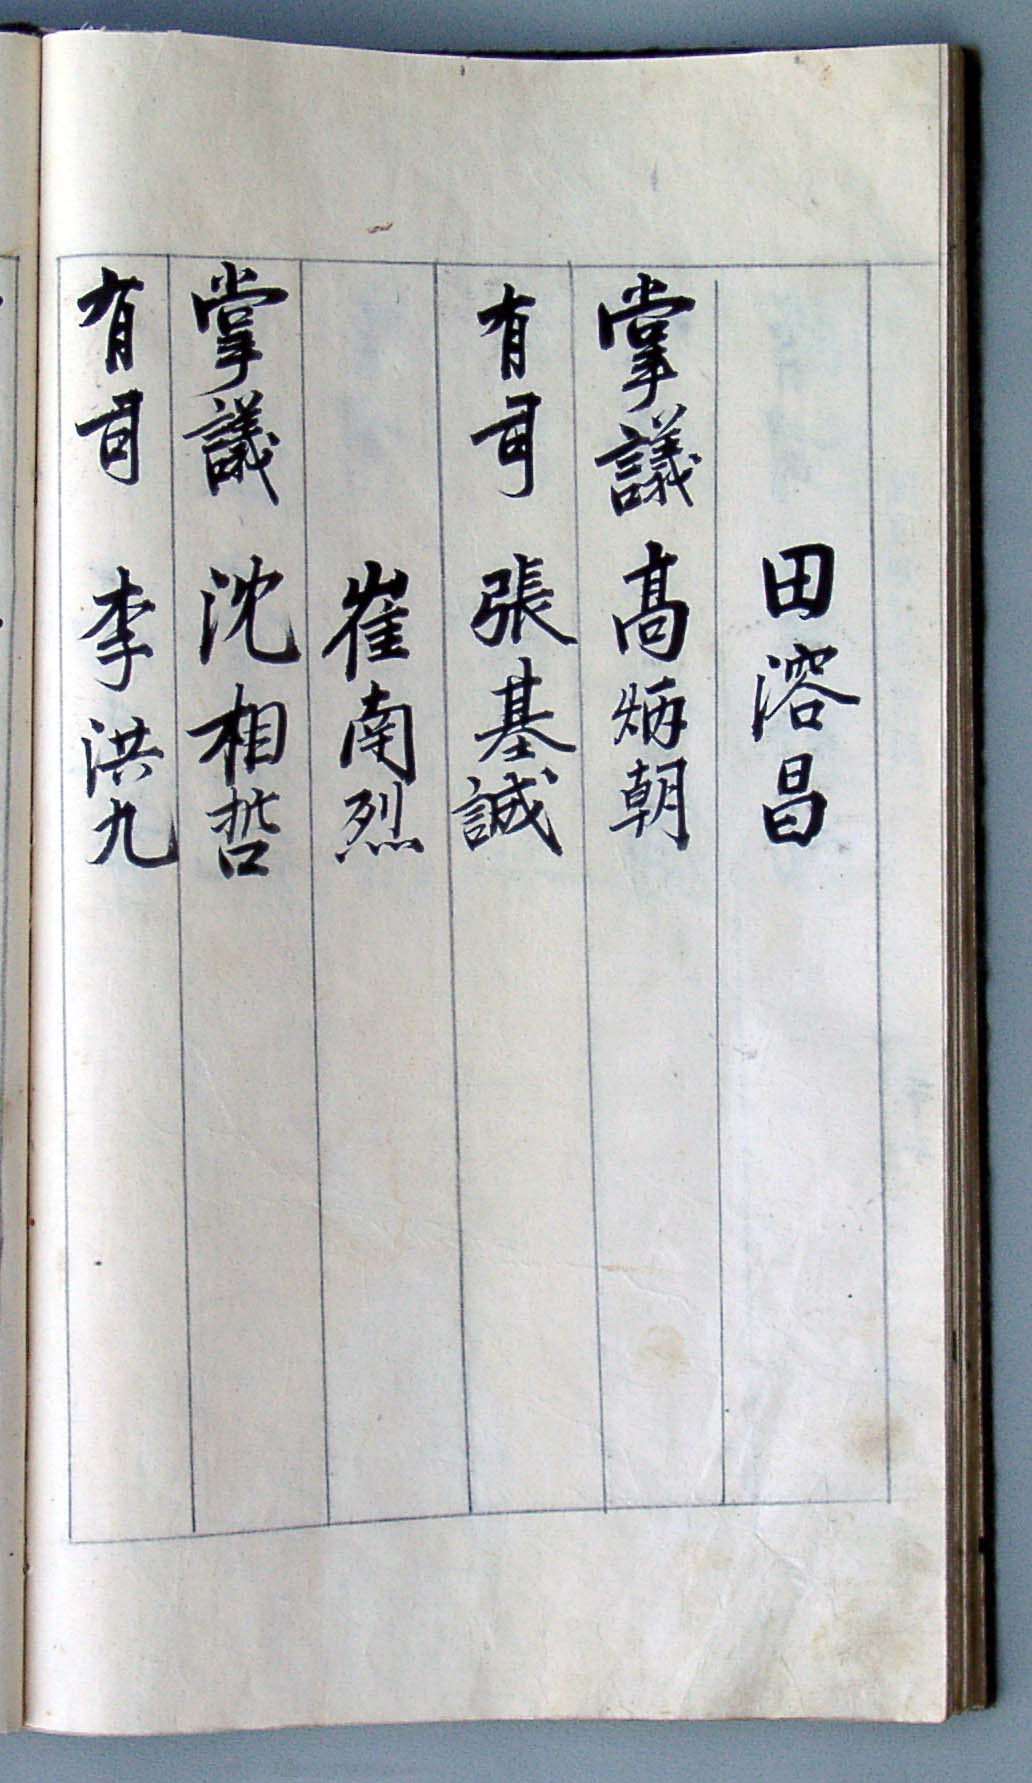 田溶昌
掌議 高炳朝
有司 張基誠
崔南烈
掌議 沈相哲
有司 李洪九